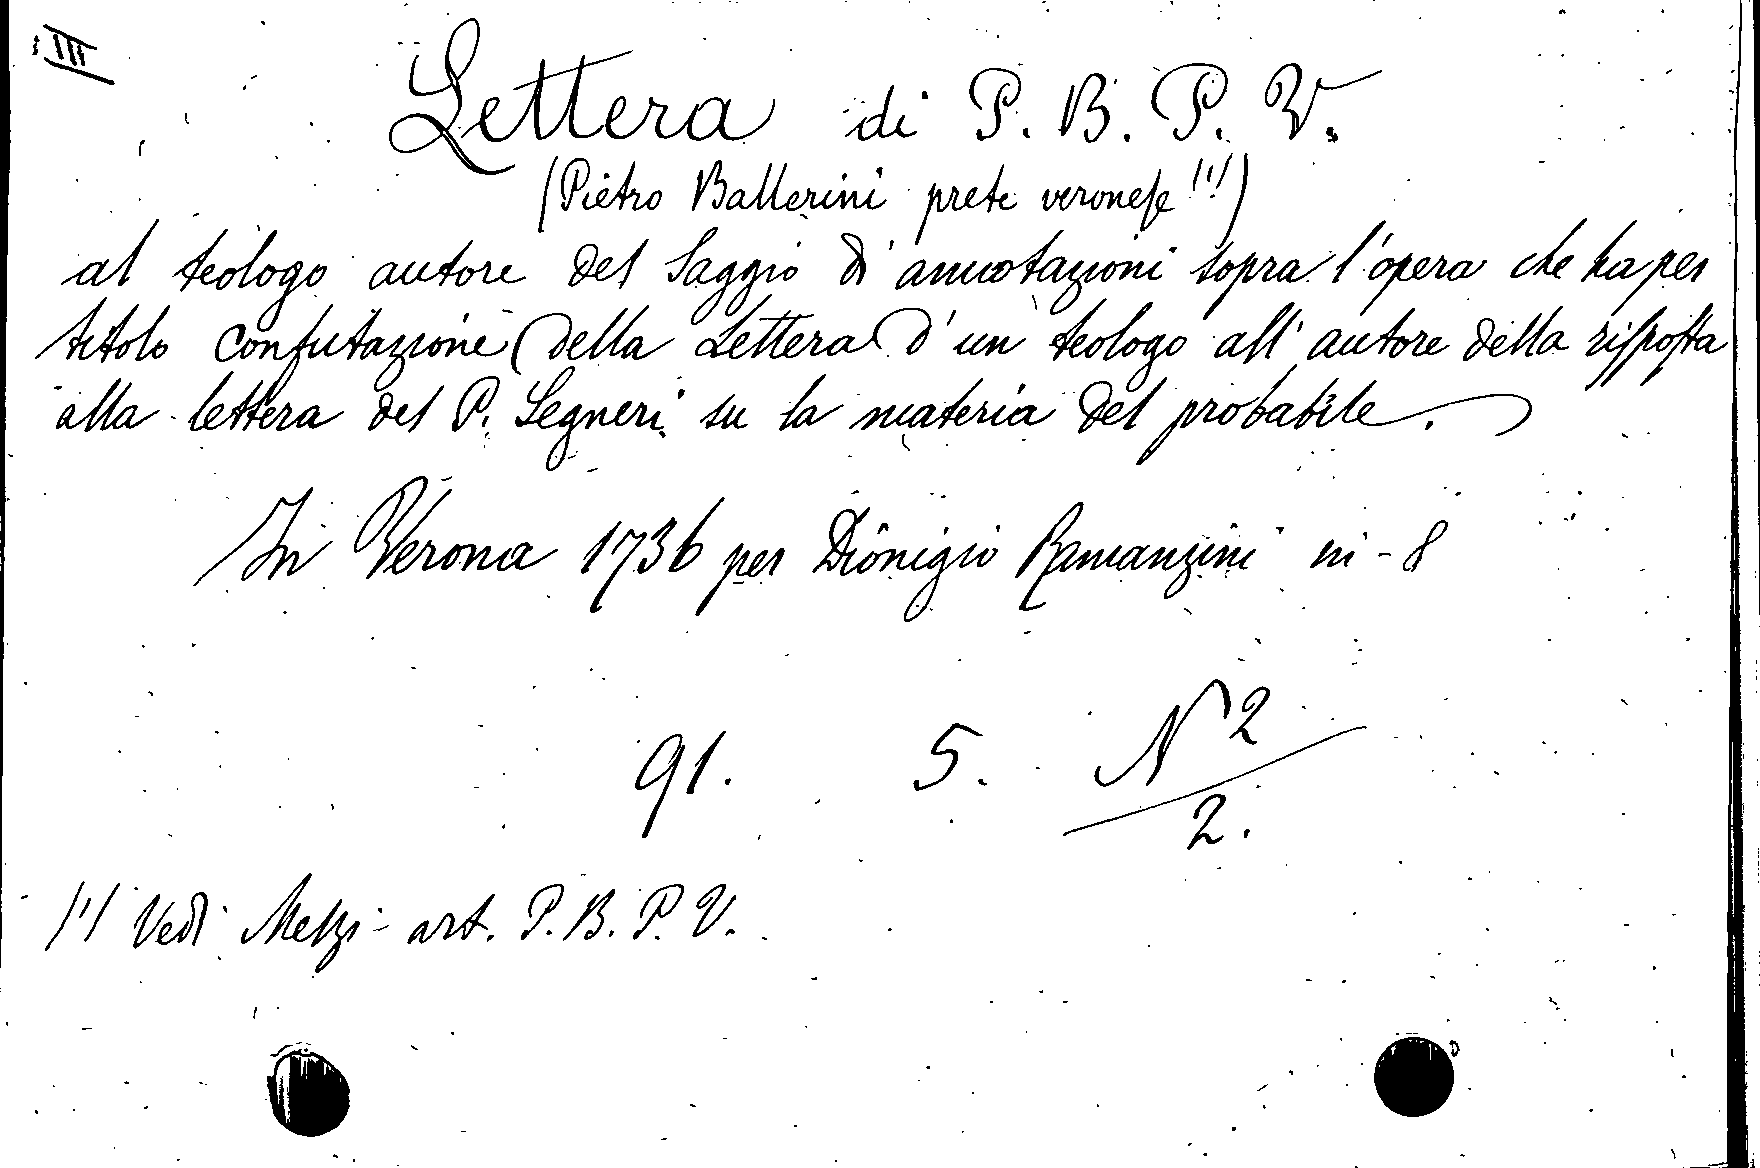 III
Lettera di P. B. P. V.
(Pietro Ballerini prete veronese (1))
al teologo autore del Saggio di annotazioni sopra l'opera che ha per
titolo Confutazione della Lettera d'un teologo all'autore della risposta
alla lettera del P. Segneri su la materia del probabile.
In Verona 1736 per Dionigio Ramanzini in-8
91. 5. N 2
2.
(1) Vedi Melzi - art. P. B. P. V.